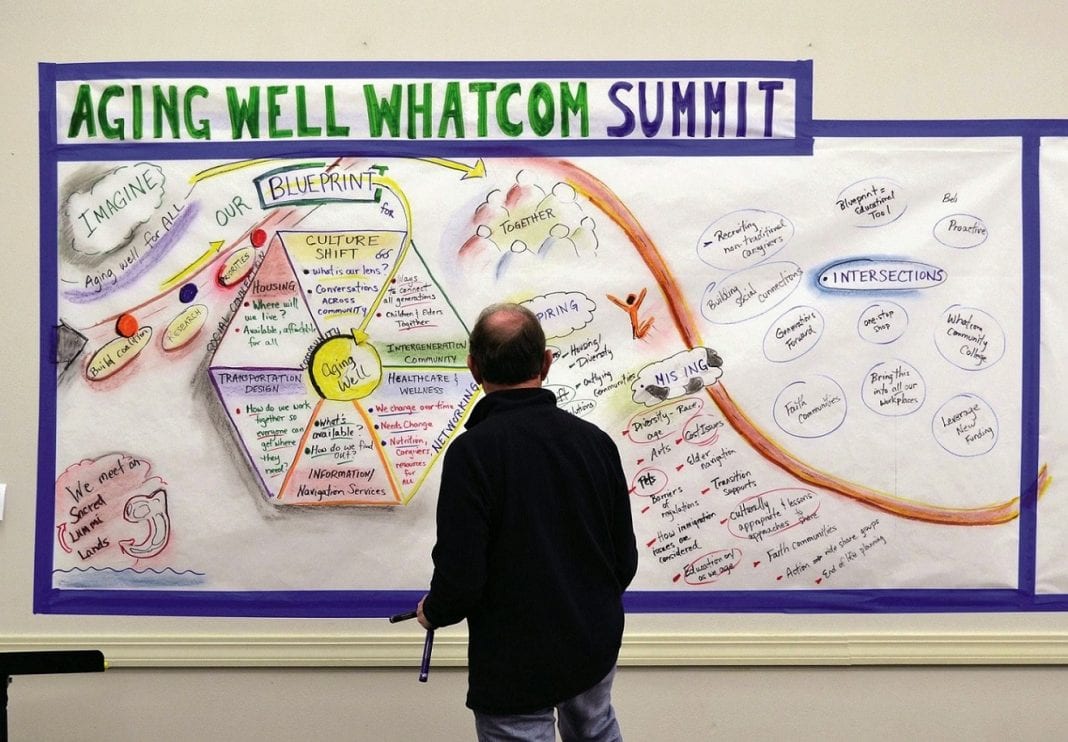 AGING WELL WHATCOM SUMMIT
IMAGINE
Aging well for ALL
OUR
BLUEPRINT
for
Build coalition
RESEARCH
PRIORITIES
SOCIAL CONNECTION
COMMUNITY
NETWORKING
CULTURE
SHIFT
• what is our lens?
• Conversations
ACROSS
COMMUNITY
• Ways
to connect
all generations
• Children & Elders
Together
INTERGENERATION
COMMUNITY
HOUSING
• Where will
we live?
• Available, affordable
for all
Aging
Well
TRANSPORTATION
DESIGN
• How do we work
together so
everyone can
get where
they
need?
• What's
available?
• How do we find
out?
INFORMATION/
Navigation Services
HEALTHCARE &
WELLNESS
• We change over time
Needs Change
• Nutrition,
Caregivers,
resources for
ALL
We meet on
Sacred
LUMMI
Lands
TOGETHER
PIRING
- Housing/
Diversity
- Outlying
Communities
MISSING
Diversity - Race,
age
Arts
Pets
Barriers of
regulations
How immigration
issues are
considered
Education on/
as we age
Cost Issues
Elder
navigation
Transition
supports
Culturally
appropriate & lessons
approaches to share
Faith communities
Action → ride share groups
End of life planning
• Recruiting
non-traditional
caregivers
Building social connections
Generations
Forward
Faith
Communities
Blueprint =
Educational
Tool
Bob
Proactive
• INTERSECTIONS
one-stop
shop
Whatcom
Community
College
Bring this
into all our
workplaces
Leverage
New
Funding